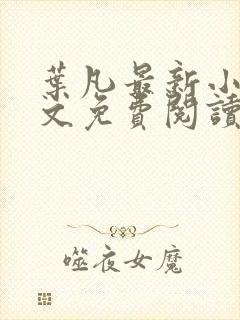 葉凡最新小
文免費閱讀
噬夜女魔